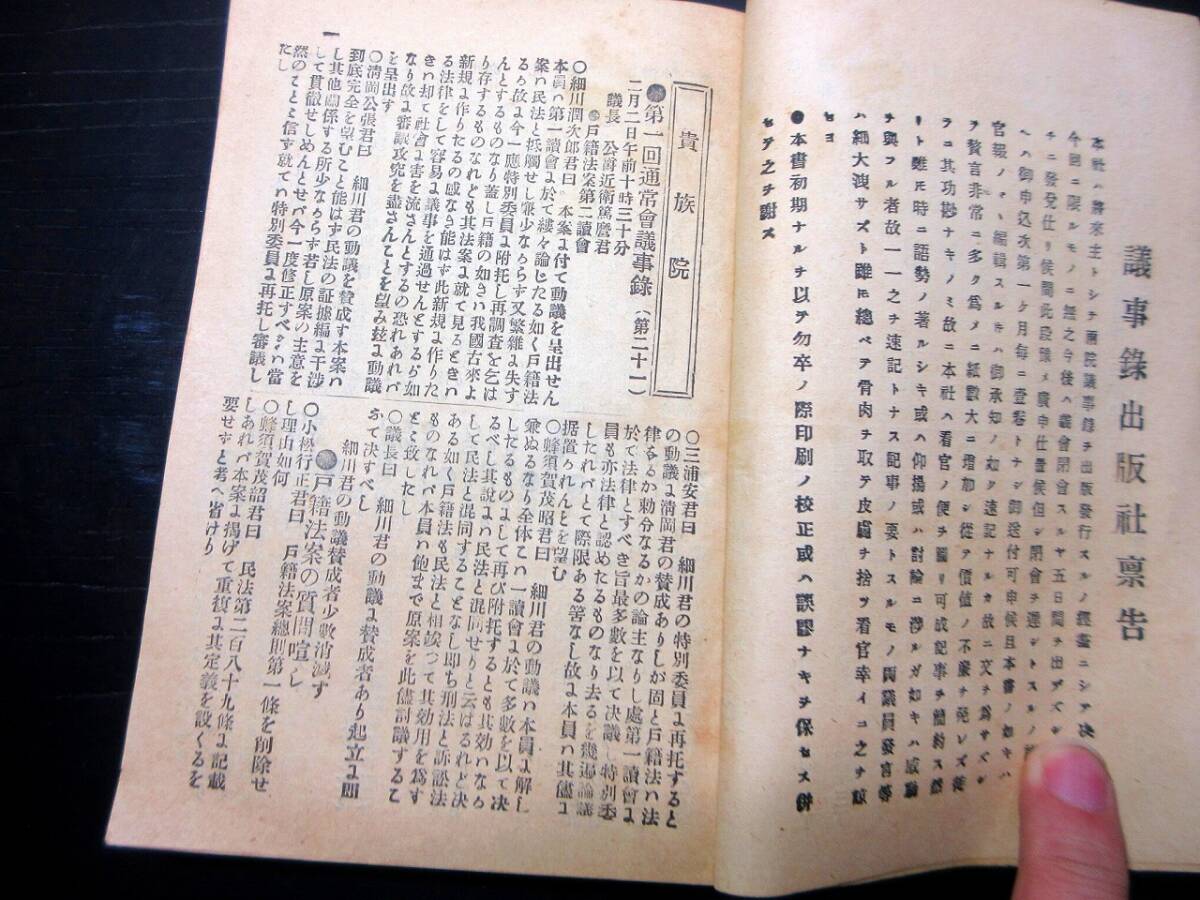 議事錄出版社稟告
本社ハ將來主トシテ兩院議事錄ヲ出版發行スルノ經畫ニシテ決
今回ニ限ルモノニ無之今後ハ議會閉會スルヤ五日間ヲ出デズシ
チニ發發仕リ候間此段豫メ廣申仕置候但シ閉會ヲ遲シトスルノ
ヘハ御申込次第一ケ月每ニ壹卷トナシ御送付可申候且本書ノ如キハ
官報ノ マヽ編輯スルキハ御承知ノ如ク速記ナルカ故ニ文ヲ爲サズシ
テ贅言非常ニ多ク爲メニ紙數大ニ增加シ從テ價値ノ不廉ヲ免レズ徒
ラニ其功尠ナキノミ故ニ本社ハ看官ノ便ヲ圖リ可成記事ヲ簡約ス然
リト雖𪜈時ニ語勢ノ著ルシキ或ハ仰揚或ハ討論ニ涉ルガ如キハ感動
ヲ與フル者故一一之ヲ速記トナス記事ノ要トスルモノ兩議員發言等
ハ細大洩サズト雖𪜈總ベテ骨肉ヲ取テ皮膚ヲ捨ツ看官幸イニ之ヲ諒
セヨ
●本書初期ナルヲ以テ勿卒ノ際印刷ノ校正或ハ誤謬ナキヲ保セス併
セテ之ヲ謝ス
貴族院
第一回通常會議事錄(第二十一)
二月二日午前十時三十分
議長 公爵近衞篤麿君
戶籍法案第二讀會
〇細川潤次郎君曰 本案よ付て動議を呈出せん
本員ハ第一讀會よ於て縷々論じたる如く戶籍法
案ハ民法と抵觸せし廉少ならず又繁雜よ失す
るゟ故よ今一應特別委員よ附托し再調査を乞は
んとするものなり蓋し戶籍の如きハ我國古來よ
り存するものなれども其法案よ就て見るときハ
新規よ作りたるの感なき能はず此新規よ作りた
る法律をして容易よ議事を通過せんとするゟ如
きハ却て社會よ害を流さんとするの恐れあれバ
なり故よ審議攻究を盡さんことを望み玆よ動議
を呈出す
〇淸岡公張君曰 細川君の動議を賛成す本案ハ
到底完全を望むこと能はず民法の証據編よ干涉
し其他關係する所少ならず若し原案の主意を
して貫徹せしめんとせバ今一度修正すべきハ當
然のことと信す就てハ特別委員よ再托し審議し
たし
一
〇三浦安君曰 細川君の特別委員よ再托すると
の動議よ淸岡君の賛成ありしが固と戶籍法ハ法
律なるか勅分なるかの論主なりし處第一讀會よ
於て法律とすべき旨最多數を以て決議し特別委
員も亦法律と認めたるものなり去るを幾遍論議
したれバとて際限ある筈なし故よ本員ハ其儘よ
据置られんとを望む
〇蜂須賀茂昭君曰 細川君の動議ハ本員よ解し
兼ぬるなり全体この一讀會よ於て多數を以て決
したるものよして再び附托するとも其効ハなる
るべし其說よハ民法と混同せりと云はるれど決
して民法と混同することなし即ち刑法と訴訟法
ある如く戶籍法も民法と相竢つて其効用を爲す
ものなれバ本員ハ飽まで原案を此儘討議するこ
とと致したし
〇議長曰 細川君の動議よ賛成者あり起立よ問
ふて決すべし
細川君の動議賛成者少數消滅す
戶籍法案の質問喧し
〇小松行正君曰 戶籍法案總則第一條を削除せ
し理由如何
〇蜂須賀茂韶君曰 民法第二百八十九條よ記載
しあれバ本案よ揭げて重複よ其定義を設くるを
要せずと考へ省けり